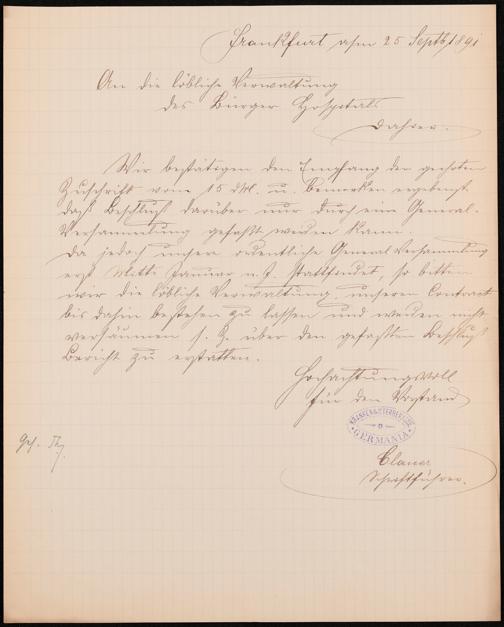 Frankfurt, a/m 25 Septb, 1891
An die löbliche Verwaltung
des Bürger Hospitals
Dahier.
Wir bestätigen den Empfang der geehrten
Zuschrift vom 15 dM. u. bemerken ergebenst
daß Beschluß darüber nur durch eine General-
Versammlung gefaßt werden kann.
Da jedoch unsere ordentliche Generalversammlung
erst Mitte Januar n. J. stattfindet, so bitten
wir die löbliche Verwaltung, unseren Contract
bis dahin bestehen zu lassen und werden nicht
versäumen s. Z. über den gefaßten Beschluß
Bericht zu erstatten.
Hochachtungsvoll
für den Vorstand
GERMANIA
Clauer
Schriftführer.